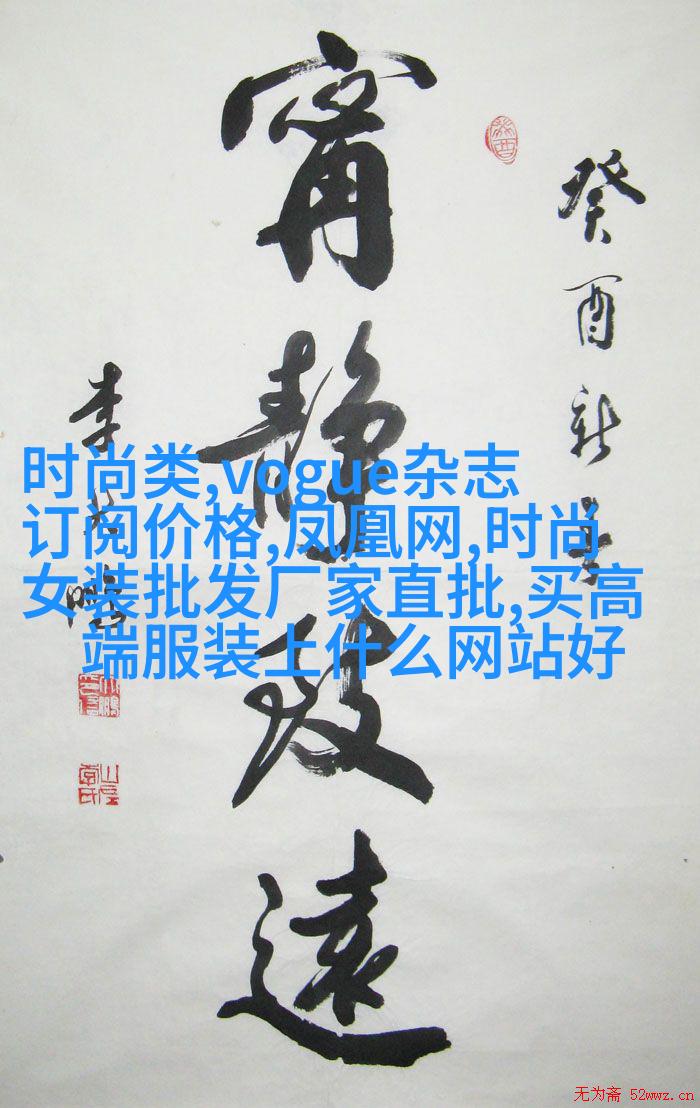 癸酉新春
甯靜致遠
李
鵬
时尚类,vogue杂志
订阅价格,凤凰网,时尚
女装批发厂家直批,买高
端服装上什么网站好
无为斋 52wwz.cn